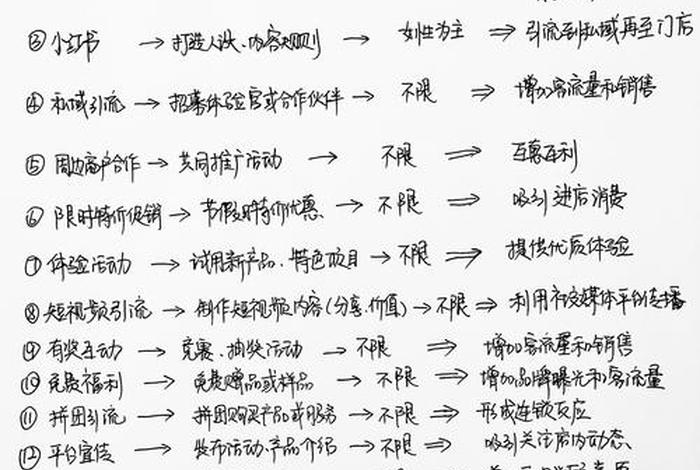 ③ 小红书 → 打造人设、内容规则 → 女性为主 ⇒ 引流到私域再至门店
④ 私域引流 → 招募体验官或合作伙伴 → 不限 ⇒ 增加客流量和销售
⑤ 周边商户合作 → 共同推广活动 → 不限 ⇒ 互惠互利
⑥ 限时特价促销 → 节假日特价优惠、 → 不限 ⇒ 吸引进店消费
⑦ 体验活动 → 试用新产品、特色项目 → 不限 ⇒ 提供优质体验
⑧ 短视频引流 → 制作短视频内容(分享、价值) → 不限 ⇒ 利用社交媒体平台传播
⑨ 有奖互动 → 竞赛、抽奖活动 → 不限 ⇒ 增加客流量和销售
⑩ 免费福利 → 免费赠品或样品 → 不限 ⇒ 增加品牌曝光和客流量
⑪ 拼团引流 → 拼团购买产品或服务 → 不限 ⇒ 形成连锁反应
⑫ 平台宣传 → 发布活动、产品介绍 → 不限 ⇒ 吸引关注店内动态、